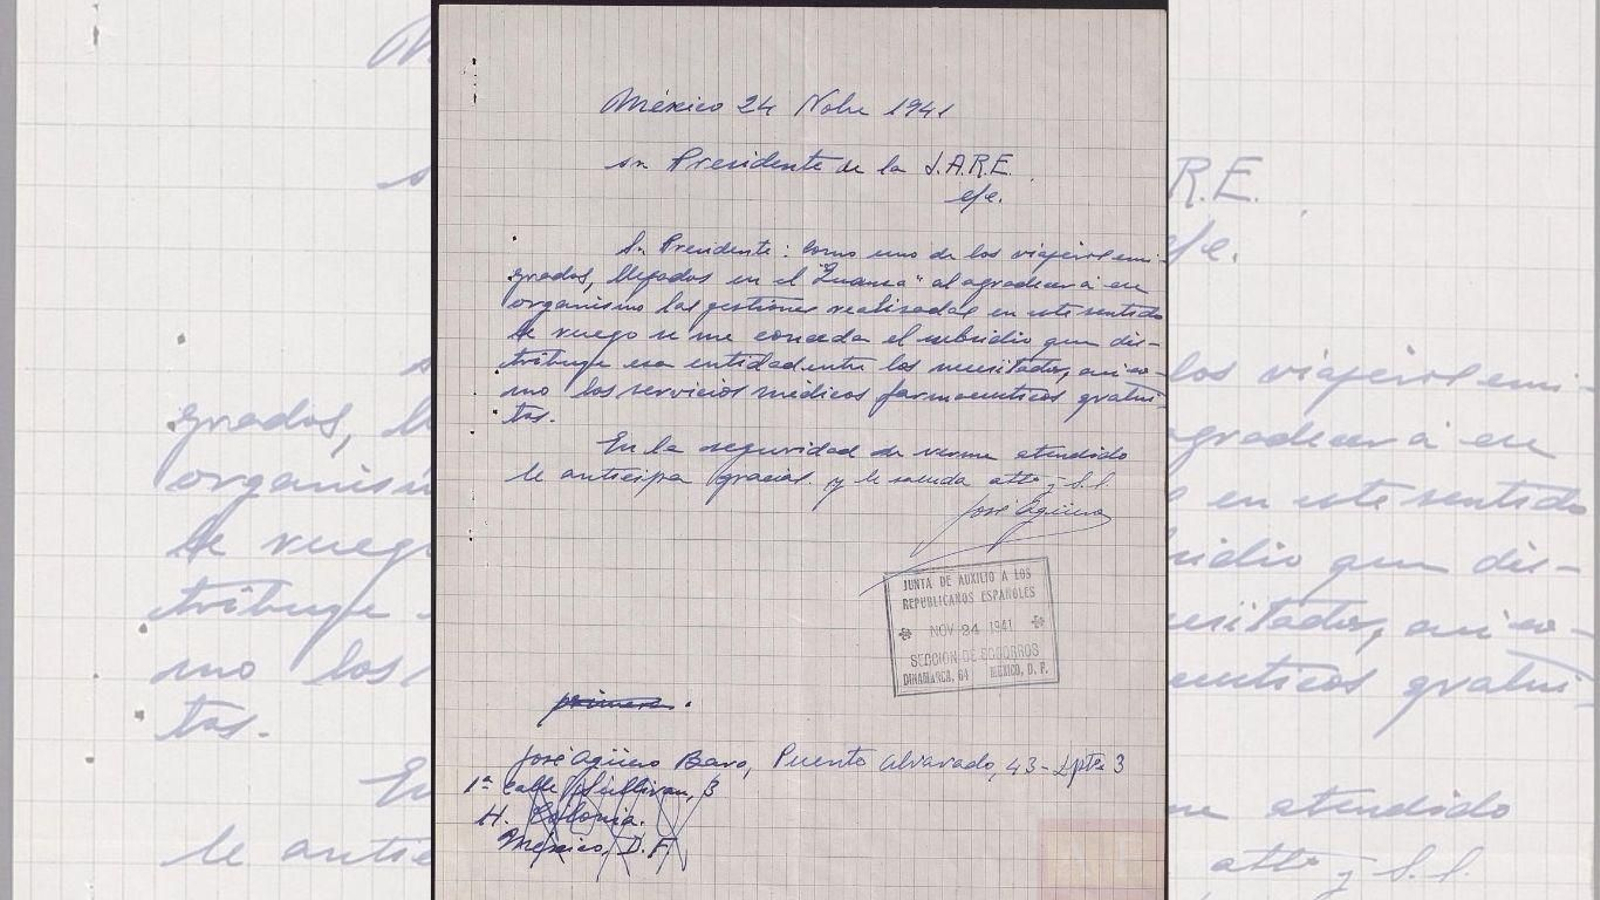 México 24 Nobe 1941
Sr. Presidente de la J.A.R.E.
c/c.
Sr. Presidente: Como uno de los viajeros emi-
grados, llegados en el "Quanza" al agradecer a ese
organismo las gestiones realizadas en este sentido
le ruego se me conceda el subsidio que dis-
tribuye esa entidad entre los necesitados, así co-
mo los servicios médicos farmaceuticos gratui-
tos.
En la seguridad de verme atendido
le anticipa gracias y le saluda atto y S.S.
José Agüero
JUNTA DE AUXILIO A LOS
REPUBLICANOS ESPAÑOLES
NOV 24 1941
SECCION DE SOCORROS
DINAMARCA, 64 MEXICO, D. F.
primera.
José Agüero Baro, Puente Alvarado, 43 - 3
1ª calle Sullivan, 3
H. Colonia.
México, D.F.